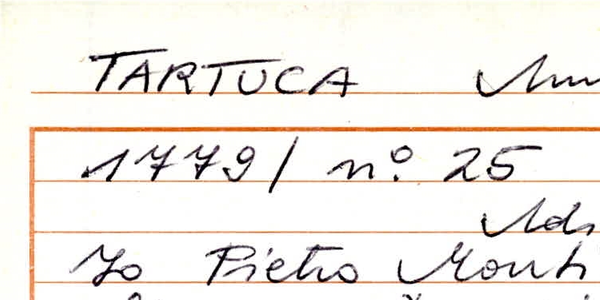 TARTUCA
1779/ nº 25
Io Pietro Monti